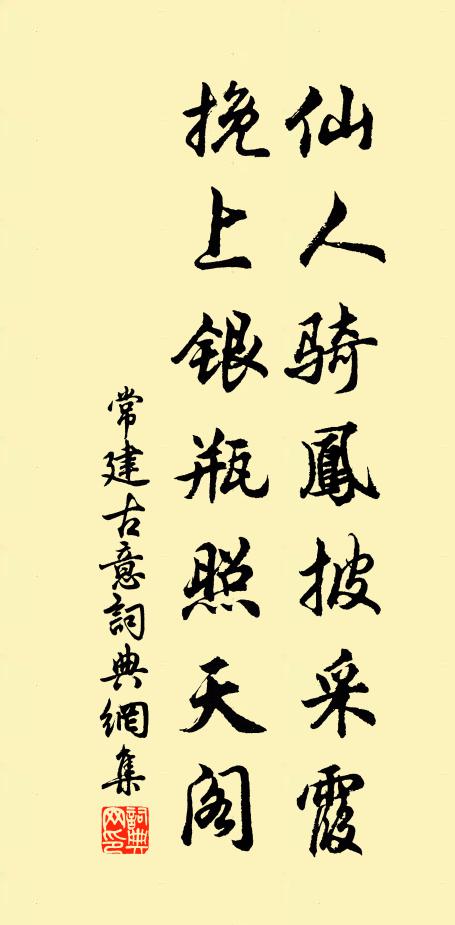 仙人骑鳳披采霞
挽上银瓶照天阁
常建古意詞典網集
詞典网印